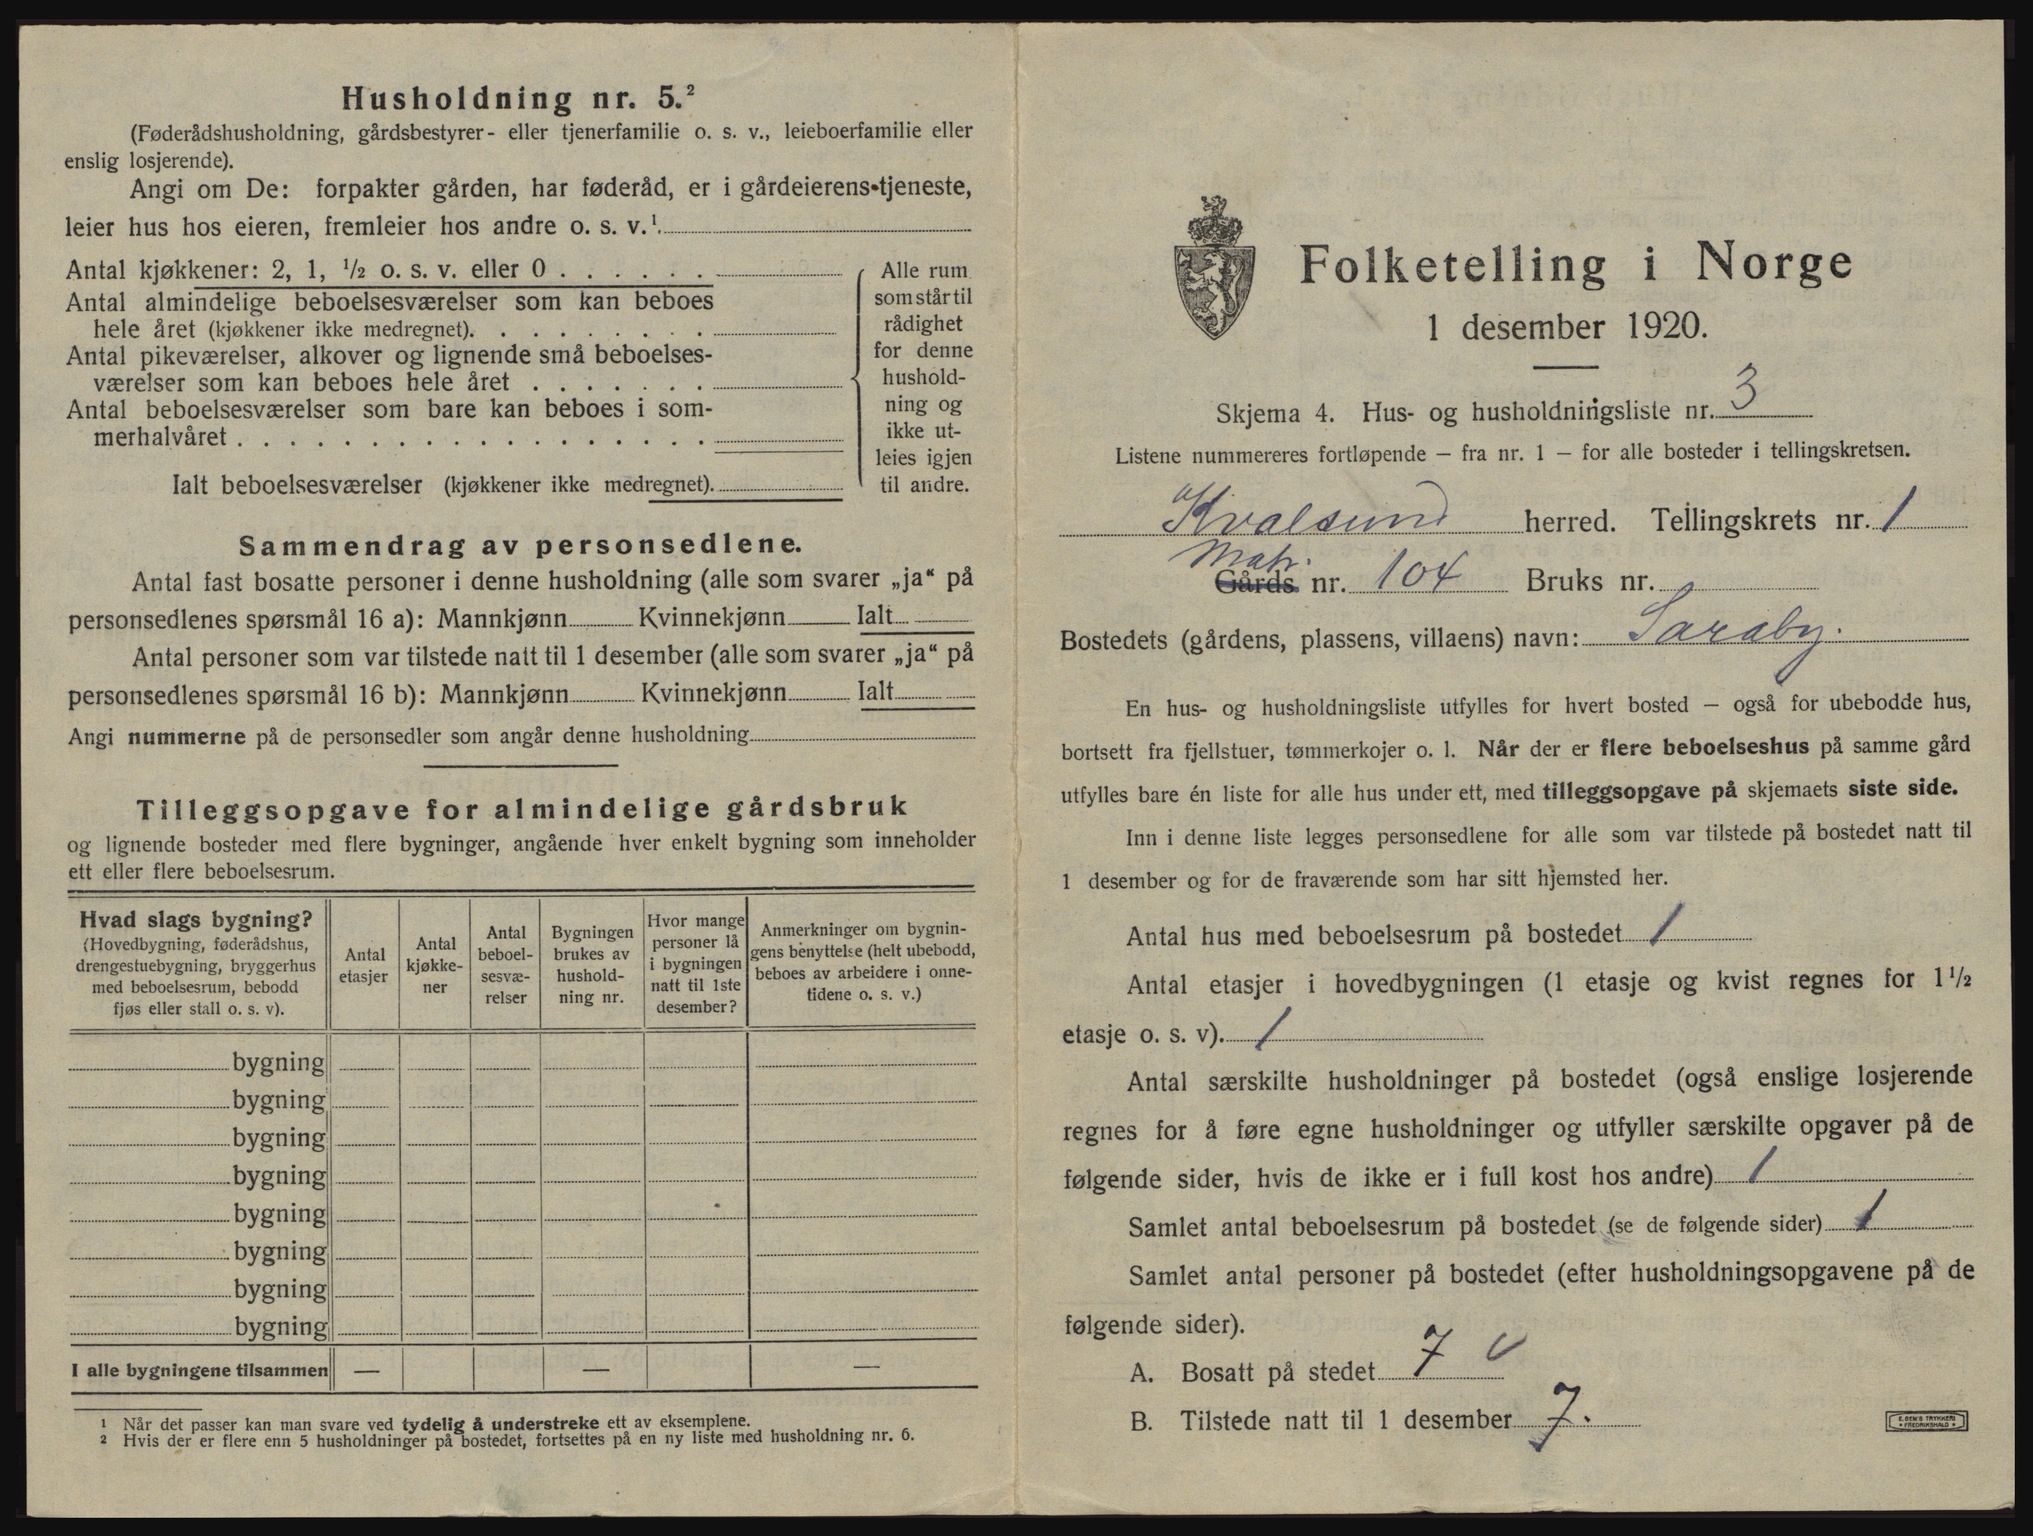 Husholdning nr. 5.²
(Føderådshusholdning, gårdsbestyrer- eller tjenerfamilie o. s. v., leieboerfamilie eller
enslig losjerende).
Angi om De: forpakter gården, har føderåd, er i gårdeierens tjeneste,
leier hus hos eieren, fremleier hos andre o. s. v.¹.
Antal kjøkkener: 2, 1, ½ o. s. v. eller 0 . . . . . .
Antal almindelige beboelsesværelser som kan beboes
hele året (kjøkkener ikke medregnet). . . . . . . . .
Antal pikeværelser, alkover og lignende små beboelses-
værelser som kan beboes hele året . . . . . . .
Antal beboelsesværelser som bare kan beboes i som-
merhalvåret . . . . . . . . . . . . . . . . . .
Ialt beboelsesværelser (kjøkkener ikke medregnet).
Alle rum
som står til
rådighet
for denne
hushold-
ning og
ikke ut-
leies igjen
til andre.
Sammendrag av personsedlene.
Antal fast bosatte personer i denne husholdning (alle som svarer „ja“ på
personsedlenes spørsmål 16 a): Mannkjønn Kvinnekjønn Ialt
Antal personer som var tilstede natt til 1 desember (alle som svarer „ja“ på
personsedlenes spørsmål 16 b): Mannkjønn Kvinnekjønn Ialt
Angi nummerne på de personsedler som angår denne husholdning
Tilleggsopgave for almindelige gårdsbruk
og lignende bosteder med flere bygninger, angående hver enkelt bygning som inneholder
ett eller flere beboelsesrum.
Hvad slags bygning?
(Hovedbygning, føderådshus,
drengestuebygning, bryggerhus
med beboelsesrum, bebodd
fjøs eller stall o. s. v).
Antal
etasjer
Antal
kjøkke-
ner
Antal
beboel-
sesvæ-
relser
Bygningen
brukes av
hushold-
ning nr.
Hvor mange
personer lå
i bygningen
natt til 1ste
desember?
Anmerkninger om bygnin-
gens benyttelse (helt ubebodd,
beboes av arbeidere i onne-
tidene o. s. v.)
bygning
bygning
bygning
bygning
bygning
bygning
bygning
bygning
I alle bygningene tilsammen — — —
¹ Når det passer kan man svare ved tydelig å understreke ett av eksemplene.
² Hvis der er flere enn 5 husholdninger på bostedet, fortsettes på en ny liste med husholdning nr. 6.
Folketelling i Norge
1 desember 1920.
Skjema 4. Hus- og husholdningsliste nr. 3
Listene nummereres fortløpende — fra nr. 1 — for alle bosteder i tellingskretsen.
Kvalsund herred. Tellingskrets nr. 1
Matr.
Gårds nr. 104 Bruks nr.
Bostedets (gårdens, plassens, villaens) navn: Saraby.
En hus- og husholdningsliste utfylles for hvert bosted — også for ubebodde hus,
bortsett fra fjellstuer, tømmerkojer o. l. Når der er flere beboelseshus på samme gård
utfylles bare én liste for alle hus under ett, med tilleggsopgave på skjemaets siste side.
Inn i denne liste legges personsedlene for alle som var tilstede på bostedet natt til
1 desember og for de fraværende som har sitt hjemsted her.
Antal hus med beboelsesrum på bostedet 1
Antal etasjer i hovedbygningen (1 etasje og kvist regnes for 1½
etasje o. s. v). 1
Antal særskilte husholdninger på bostedet (også enslige losjerende
regnes for å føre egne husholdninger og utfyller særskilte opgaver på de
følgende sider, hvis de ikke er i full kost hos andre) 1
Samlet antal beboelsesrum på bostedet (se de følgende sider) 1
Samlet antal personer på bostedet (efter husholdningsopgavene på de
følgende sider).
A. Bosatt på stedet 7
B. Tilstede natt til 1 desember 7.
E. SEM'S TRYKKERI
FREDRIKSHALD